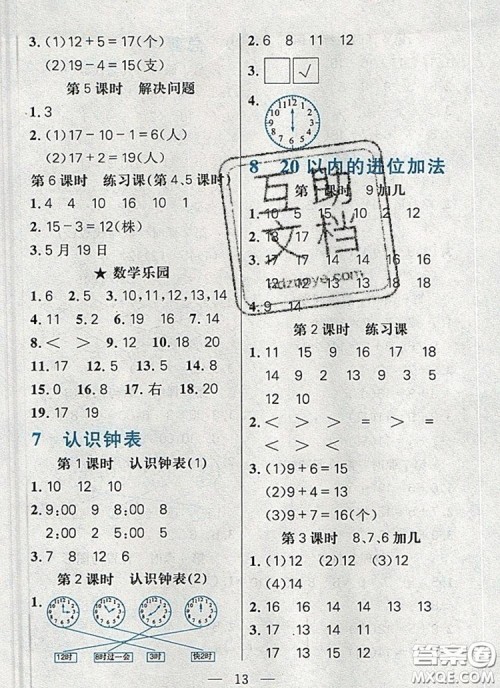 3. (1)12+5=17(个)
(2)19-4=15(支)
第5课时 解决问题
1. 3
2. (1)17-10-1=6(人)
(2)17-10+1=8(人)
第6课时 练习课(第4、5课时)
1. 4 4 10 16 10 1
2. 15-3=12(株)
3. 5月19日
★ 数学乐园
1. 6 2. 5 3. 10,11,12,13,14
4. 11 5. 2 6. 16 7. 14
8. < > < > 9. 18 10. 18
11. 17 12. 5 13. 19 14. 13
15. 0 16. 8 17. 右 18. 20
19. 17 19
7 认识钟表
第1课时 认识钟表(1)
1. 10 12 10
2. 9:00 8:00 5:00
2:00 2:00 5:00
3. 7 8 12 6
第2课时 认识钟表(2)
1.
12时 8时过一会 3时 快2时
2. 6 8 11 12
3. √
4.
8 20以内的进位加法
第1课时 9加几
1. 10 5 10 15 10 16
2. 15 13
3. 17 17 14 12 17 17
12 12 13 18 18
4. 9 14
第2课时 练习课
1. 17 11 15 16 12 18
14 12 9 13 9 5
12 10
2. < > > > = >
> < > <
3. (1)9+6=15
(2)9+5=14
(3)9+7=16(个)
第3课时 8、7、6加几
1. (1)12 (2)12 (3)12
(4)14
2. 17 16 14 13 11 11
3. 13 14 15 13 15 16
互助
文档
13
答案圈
MXQE.COM